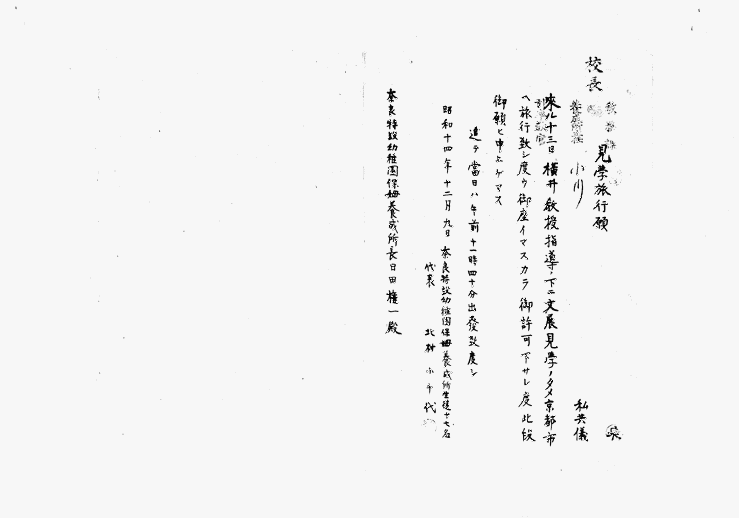 校長
小川
見学旅行願
私共儀
來ル十三日 横井教授指導ノ下ニ文展見学ノタメ京都市
ヘ旅行致シ度ク御座イマスカラ御許可下サレ度此段
御願ヒ申上ゲマス
追テ當日ハ午前十一時四十分出發致度シ
昭和十四年十二月九日 奈良特設幼稚園保姆養成所生徒十七名
代表 北村 小千代
奈良特設幼稚園保姆養成所長日田権一殿